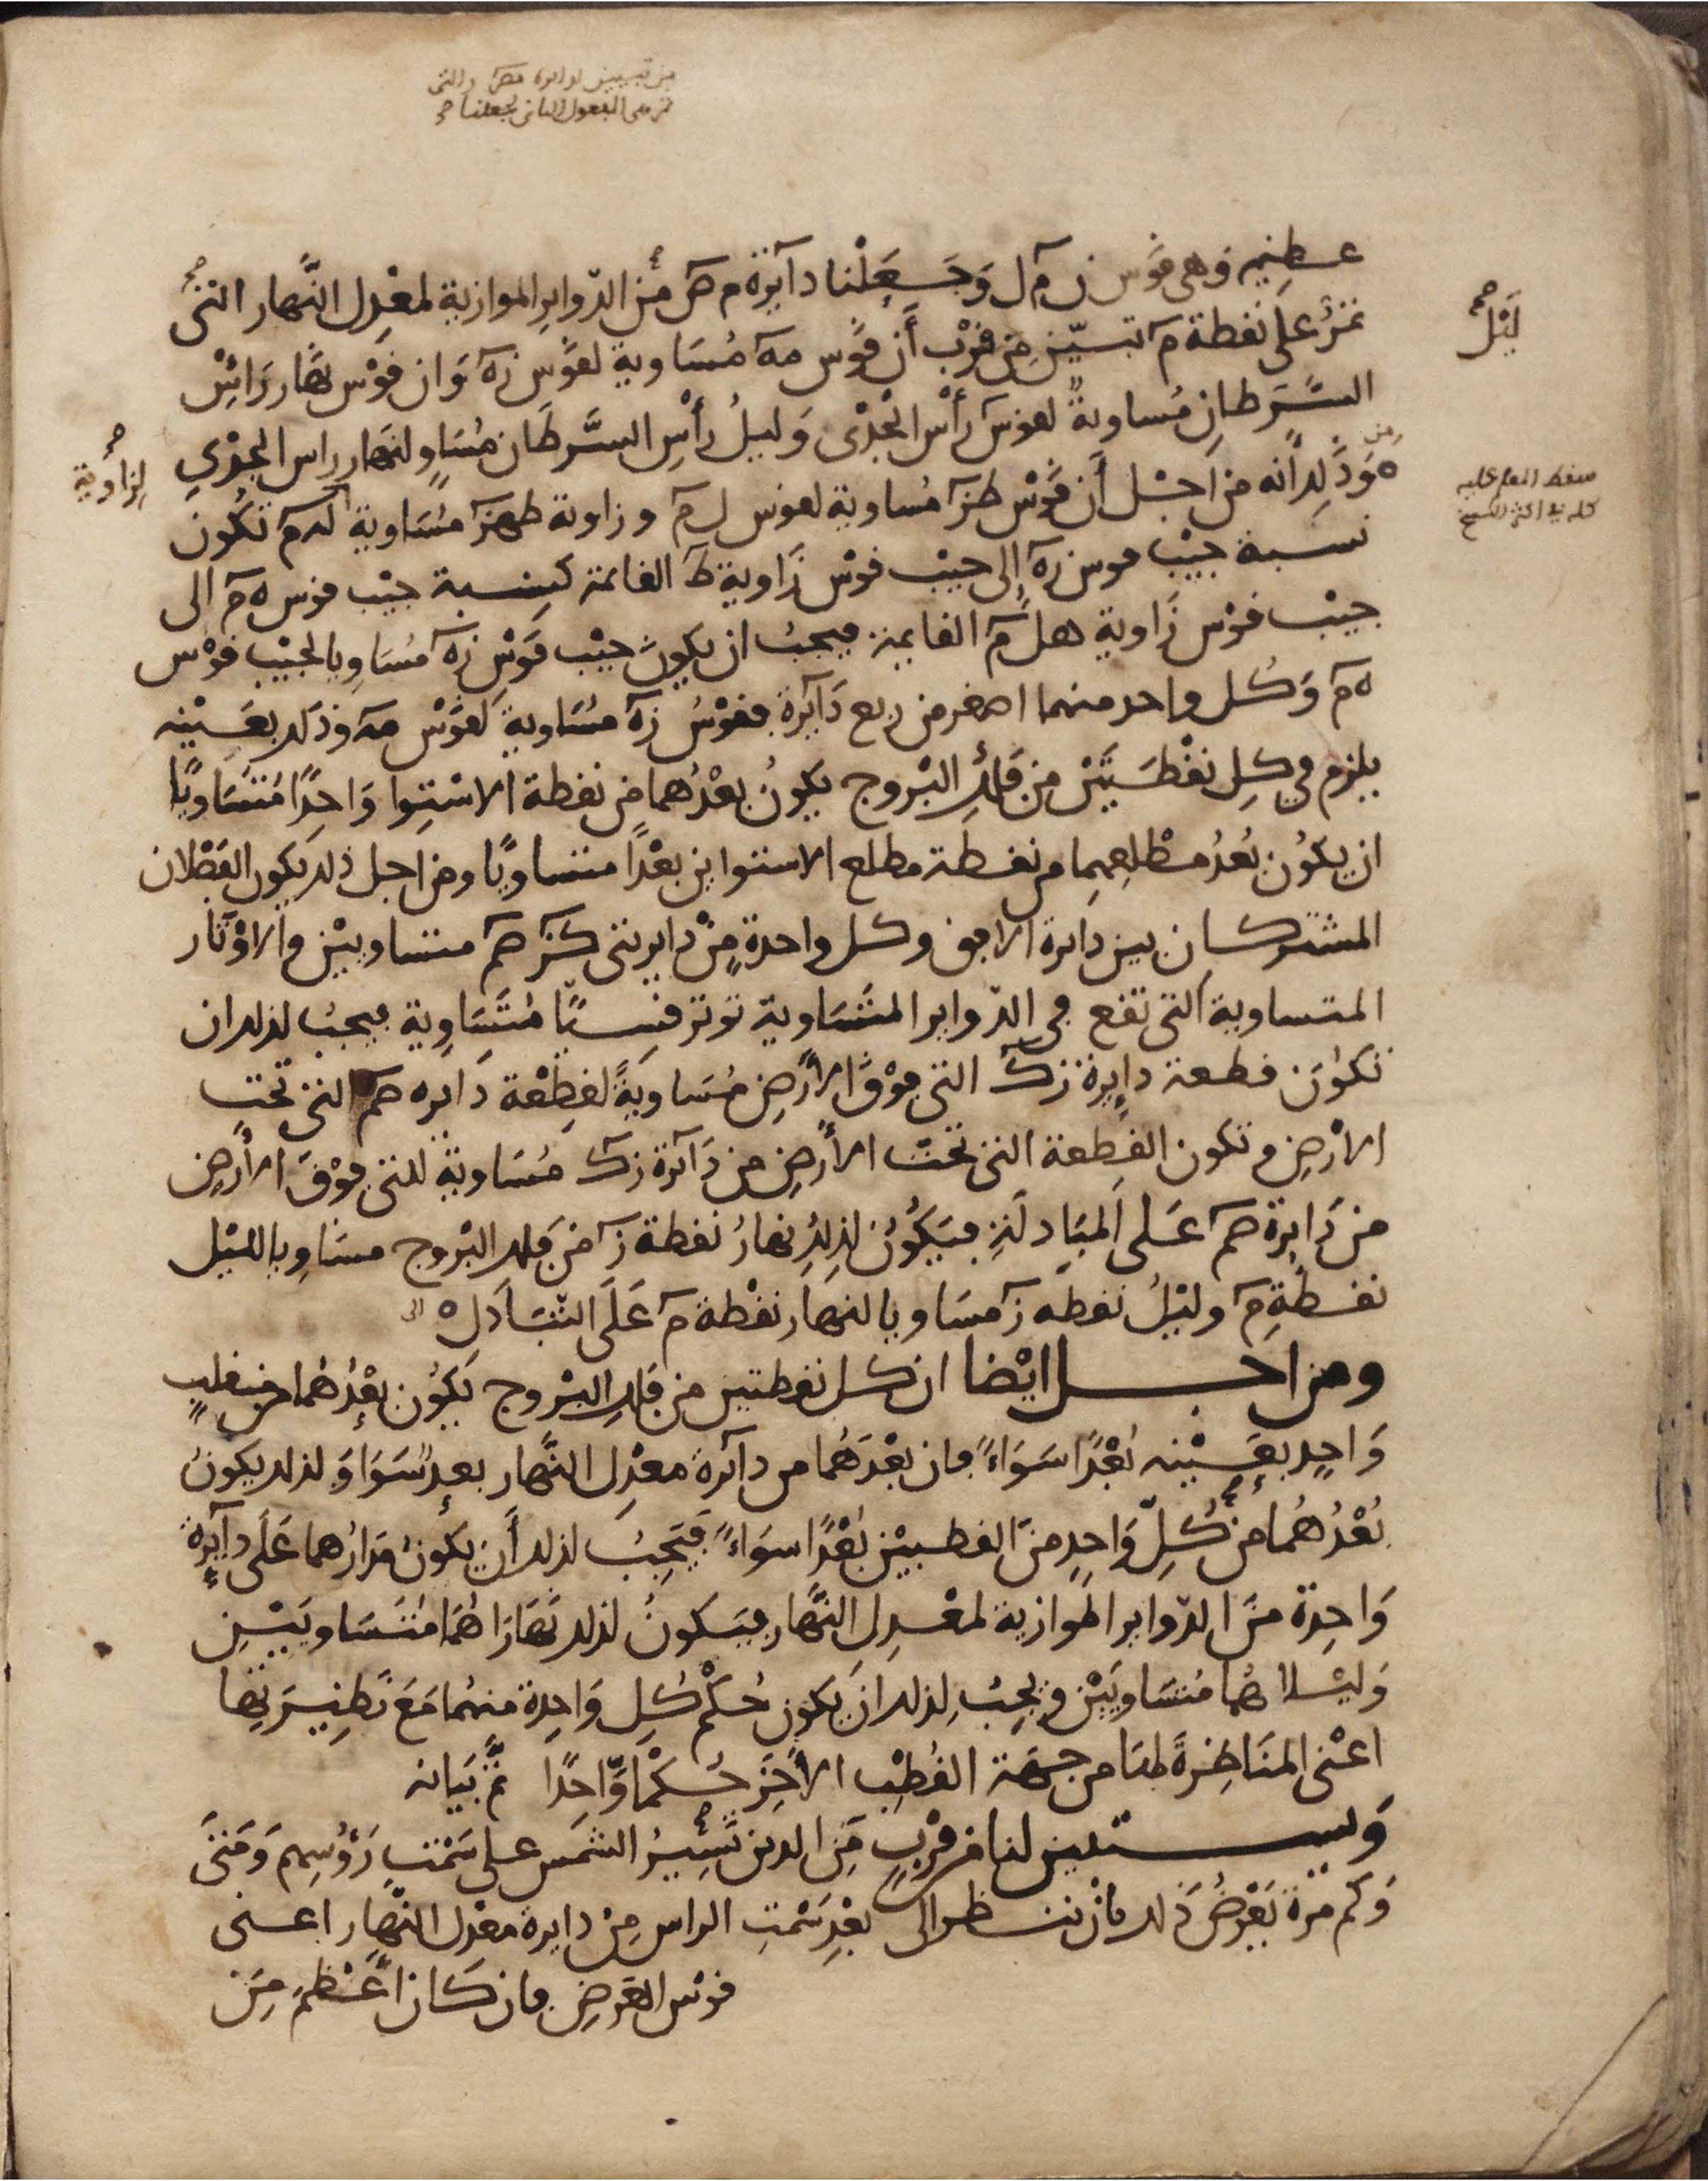 عظيمة وهي قوس ن م ل وَجَعَلْنا دآئرة م ص مِّنَ الدّوايرِ الموازية لمعْدِل النَّهار التى
تمرُّ على نقطة م تبيّن مِن قرْب أَن قوْس مه مُسَاوية لقوْس زه وَان قوْس نهَار رَائْس
السَّرَطانِ مُساويةٌ لقوس رأْس الْجَدْى وَليلُ رأْسِ السَّرطَان مُسَاوٍ لنهار راس الجدْيِ
وَذَلِكَ انه من اجْل أَن قَوْس طز مُساوية لقوس ل م وزاوية طهز مُسَاوية له م تكُون
نسبة جيْب قوس زه إلى جيْب قوْس زَاوية ط القائمة كنسبة جيْب قوس ه م الى
جيْب قوْس زَاوية هل م القايمة فيجبُ ان يكون جيْب قَوْس زه مُسَاوِيا لجيْب قوْس
ه م وَكُل واحد منهما اصغر من ربع دَآئرة فقوْسُ زه مُسَاوية لقوْس مه وذلك بعَيْنِه
يلزم في كل نقْطَتَيْن مِن فَلَك البُروج يكونُ بعْدُهُما مِن نقطة الاسْتِوا وَاحِدًا مُتَسَاويًا
ان يكوُن بُعْدُ مطْلعِهِما من نقطة مطلع الاستوا ين بعْدًا متساويًا ومن اجل ذلك يكون الفَصْلان
المشتركان بين دايرة الافق وكل واحدةٍ مِنْ دايرتى كز صم متساوييْن والاوْتَار
المتساوية التى تقع فى الدّواير المتَسَاوية توتر قسيًّا مُتَسَاوية فيجبُ لذلك ان
تكوُن قطعة دايِرة زك التى فوْقَ الأرْضِ مُسَاويَةً لقِطْعَة دَايره صم التى تحْت
الأرْضِ وتكون القِطعة التى تحْتَ الأَرْضِ من دَآئرة زك مُسَاويةً للتى فوْقَ الأرْضِ
من دَايرة صم عَلى المبَادلَةِ فيَكُونُ لذلِكَ نهارُ نقطة ز مِن فلك البُروج مسَاوِيا لليْل
نقطةِ م وليْلُ نقطه ز مسَاويا لنهار نقْطة م عَلَى التّبَادُل ه
ومن اجل ايْضا ان كل نقطتين من فلك البُروج يكُون بعْدُهُما من منقلبٍ
وَاحِدٍ بعَيْنِه بُعْدًا سَوَاءً فان بعْدَهُما من دآئرة معْدِل النَّهار بعد سَوَا وَلذلك يكونُ
بُعْدُهُما مِن كُلِّ وَاحِدٍ مِنَ القطبيْنِ بُعْدًا سوَاءً فَيَجِبُ لذلك أَن يكونَ مَدارُهما عَلَى دآئِرةٍ
وَاحِدة مِنَ الدّواير الموازية لمعْدِل النَّهار فيَكونُ لذلك نَهَارَاهُمَا مُتَسَاوِيَيْنِ
وَليْلاهُما مُتسَاوِيَيْن ويجبُ لِذلك ان يكون حُكْمُ كُل وَاحِدة منهُما مَعَ نَظِيرَتِها
اعْنى المنَاظِرَةَ لهَا من جهَة القُطْبِ الأخَر حُكْمًا وَّاحِدًا تمَّ بَيَانه
وَسيتبين لنا من قُرْبٍ مَنِ الذين تَسِيرُ الشمْس على سَمْتِ رَؤُوسِهِم وَمَتَى
وَكَم مَرّة يَعْرضُ ذَلك بأَنْ ننظر الى بعْدِ سَمْتِ الراس مِنْ دايرة معْدِل النَّهار اعنى
قوْس العَرضِ فان كَان أَعْظمَ مِنَ
لَيْل صح
لزاوية صح